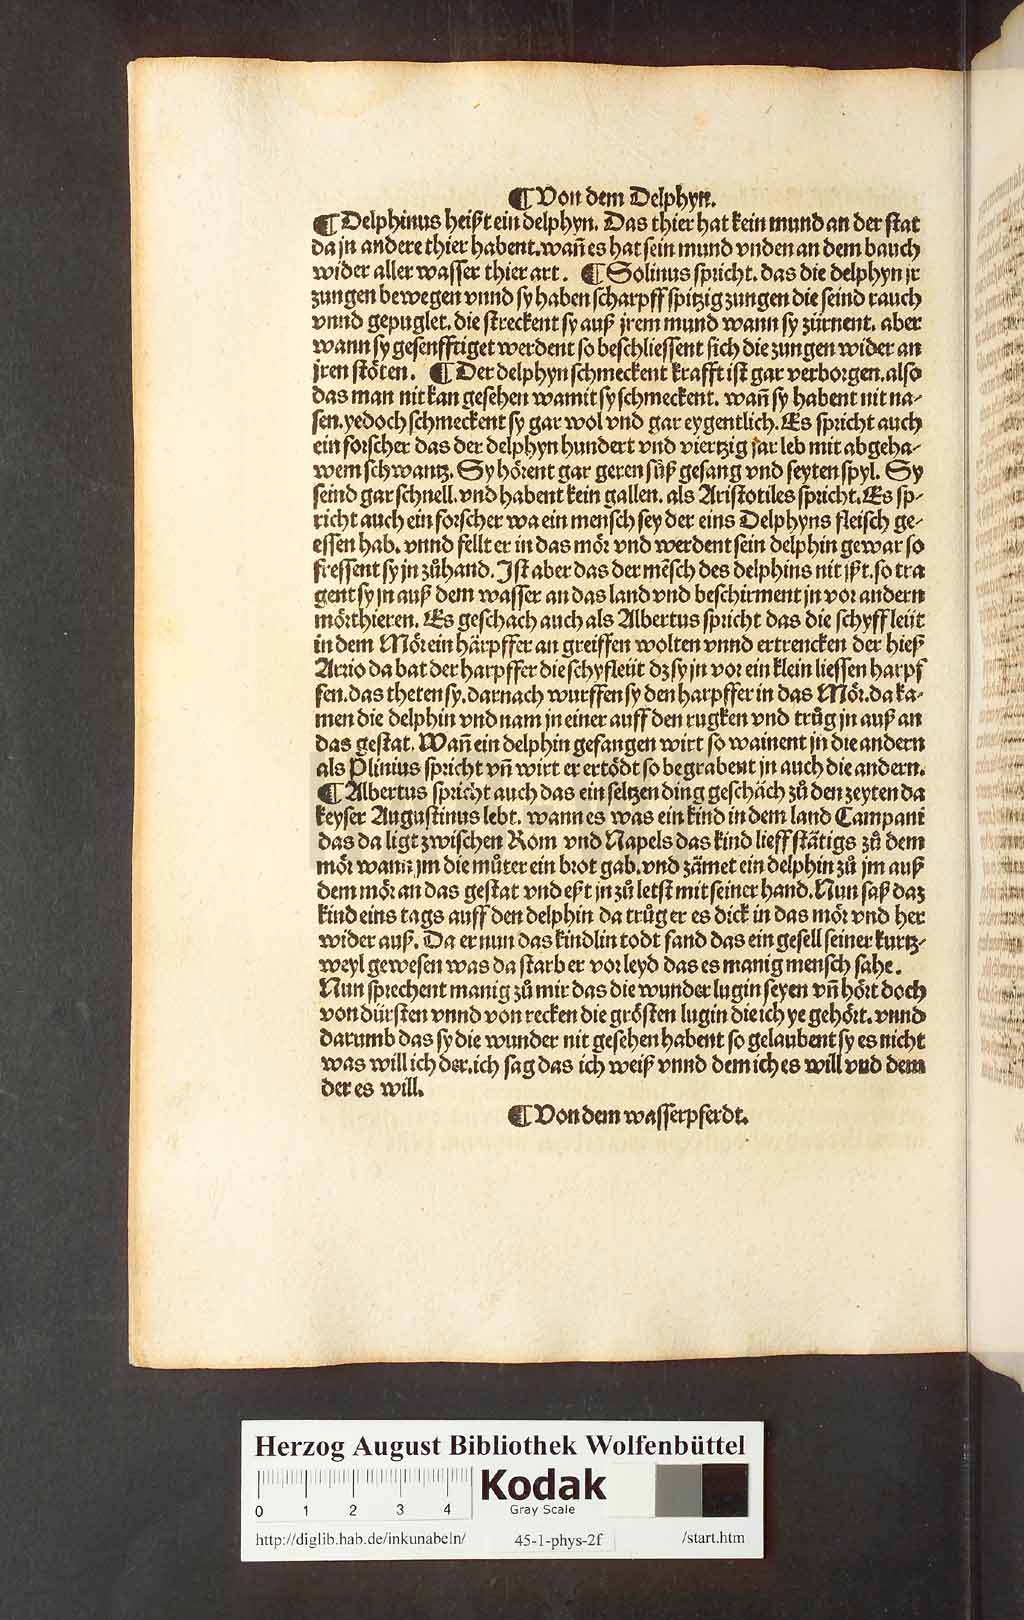 ¶ Von dem Delphyn.
¶ Delphinus heißt ein delphyn. Das thier hat kein mund an der stat
da jn andere thier habent. wañ es hat sein mund vnden an dem bauch
wider aller wasser thier art. ¶ Solinus spricht. das die delphyn jr
zungen bewegen vnnd sy haben scharpff spitzig zungen die seind rauch
vnnd gepuglet. die streckent sy auß jrem mund wann sy zürnent. aber
wann sy gesenfftiget werdent so beschliessent sich die zungen wider an
jren stöten. ¶ Der delphyn schmeckent krafft ist gar verborgen. also
das man nit kan gesehen wamit sy schmeckent. wañ sy habent nit na-
sen. yedoch schmeckent sy gar wol vnd gar eygentlich. Es spricht auch
ein forscher das der delphyn hundert vnd viertzig jar leb mit abgeha-
wem schwantz. Sy hörent gar geren süß gesang vnd seyten spyl. Sy
seind gar schnell. vnd habent kein gallen. als Aristotiles spricht. Es sp-
richt auch ein forscher wa ein mensch sey der eins Delphyns fleisch ge-
essen hab. vnnd fellt er in das mör vnd werdent sein delphin gewar so
fressent sy jn zůhand. Ist aber das der mẽsch des delphins nit jßt. so tra
gent sy jn auß dem wasser an das land vnd beschirment jn vor andern
mörthieren. Es geschach auch als Albertus spricht das die schyff leüt
in dem Mör ein härpffer an greiffen wolten vnnd ertrencken der hieß
Arzio da bat der harpffer die schyfleüt dz sy jn vor ein klein liessen harpf
fen. das theten sy. darnach wurffen sy den harpffer in das Mör. da ka-
men die delphin vnd nam jn einer auff den rugken vnd trůg jn auß an
das gestat. Wañ ein delphin gefangen wirt so wainent jn die andern
als Plinius spricht vñ wirt er ertödt so begrabent jn auch die andern.
¶ Albertus spricht auch das ein seltzen ding geschäch zů den zeyten da
keyser Augustinus lebt. wann es was ein kind in dem land Campani
das da ligt zwischen Rom vnd Napels das kind lieff stätigs zů dem
mör wann jm die můter ein brot gab. vnd zämet ein delphin zů jm auß
dem mör an das gestat vnd eßt jn zů letst mit seiner hand. Nun saß daz
kind eins tags auff den delphin da trůg er es dick in das mör vnd her
wider auß. Da er nun das kindlin todt fand das ein gesell seiner kurtz-
weyl gewesen was da starb er vor leyd das es manig mensch sahe.
Nun sprechent manig zů mir das die wunder lugin seyen vñ hört doch
von dürsten vnnd von recken die grösten lugin die ich ye gehört. vnnd
darumb das sy die wunder nit gesehen habent so gelaubent sy es nicht
was will ich der. ich sag das ich weiß vnnd dem ich es will vnd dem
der es will.
¶ Von dem wasserpferdt.
Herzog August Bibliothek Wolfenbüttel
0 1 2 3 4
Kodak
Gray Scale
http://diglib.hab.de/inkunabeln/ 45-1-phys-2f /start.htm